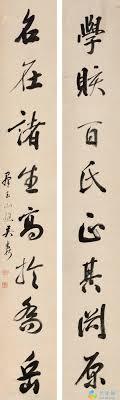 學賅百氏正其淵原
名在諸生高於喬岳